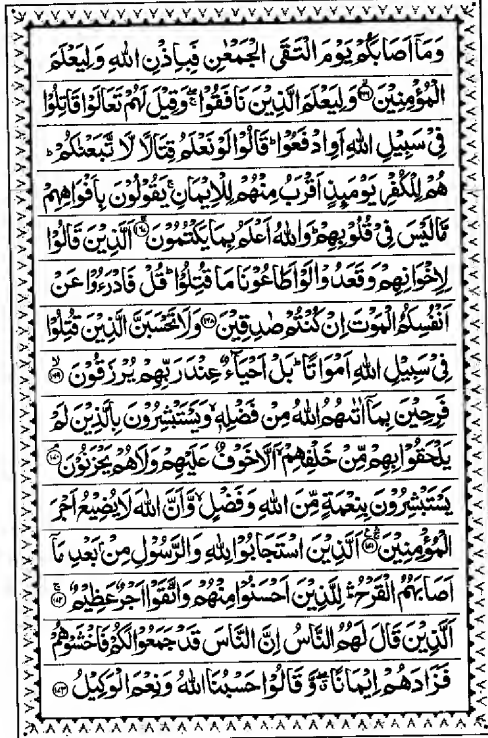 وَمَاۤ اَصَابَكُمْ يَوْمَ الْتَقَى الْجَمْعٰنِ فَبِاِذْنِ اللّٰهِ وَلِيَعْلَمَ
الْمُؤْمِنِيْنَ ۝۱۶۶ وَلِيَعْلَمَ الَّذِيْنَ نَافَقُوْا ۖۚ وَقِيْلَ لَهُمْ تَعَالَوْا قَاتِلُوْا
فِيْ سَبِيْلِ اللّٰهِ اَوِ ادْفَعُوْا ؕ قَالُوْا لَوْ نَعْلَمُ قِتَالًا لَّا تَّبَعْنٰكُمْ ؕ
هُمْ لِلْكُفْرِ يَوْمَىِٕذٍ اَقْرَبُ مِنْهُمْ لِلْاِيْمَانِ ۚ يَقُوْلُوْنَ بِاَفْوَاهِهِمْ
مَّا لَيْسَ فِيْ قُلُوْبِهِمْ ؕ وَاللّٰهُ اَعْلَمُ بِمَا يَكْتُمُوْنَ ۝۱۶۷ اَلَّذِيْنَ قَالُوْا
لِاِخْوَانِهِمْ وَقَعَدُوْا لَوْ اَطَاعُوْنَا مَا قُتِلُوْا ؕ قُلْ فَادْرَءُوْا عَنْ
اَنْفُسِكُمُ الْمَوْتَ اِنْ كُنْتُمْ صٰدِقِيْنَ ۝۱۶۸ وَلَا تَحْسَبَنَّ الَّذِيْنَ قُتِلُوْا
فِيْ سَبِيْلِ اللّٰهِ اَمْوَاتًا ؕ بَلْ اَحْيَآءٌ عِنْدَ رَبِّهِمْ يُرْزَقُوْنَ ۝۱۶۹ۙ
فَرِحِيْنَ بِمَاۤ اٰتٰىهُمُ اللّٰهُ مِنْ فَضْلِهٖ ۙ وَيَسْتَبْشِرُوْنَ بِالَّذِيْنَ لَمْ
يَلْحَقُوْا بِهِمْ مِّنْ خَلْفِهِمْ ۙ اَلَّا خَوْفٌ عَلَيْهِمْ وَلَا هُمْ يَحْزَنُوْنَ ۝۱۷۰ۘ
يَسْتَبْشِرُوْنَ بِنِعْمَةٍ مِّنَ اللّٰهِ وَفَضْلٍ ۙ وَّاَنَّ اللّٰهَ لَا يُضِيْعُ اَجْرَ
الْمُؤْمِنِيْنَ ۝۱۷۱ اَلَّذِيْنَ اسْتَجَابُوْا لِلّٰهِ وَالرَّسُوْلِ مِنْۢ بَعْدِ مَاۤ
اَصَابَهُمُ الْقَرْحُ ۛؕ لِلَّذِيْنَ اَحْسَنُوْا مِنْهُمْ وَاتَّقَوْا اَجْرٌ عَظِيْمٌ ۝۱۷۲ۚ
اَلَّذِيْنَ قَالَ لَهُمُ النَّاسُ اِنَّ النَّاسَ قَدْ جَمَعُوْا لَكُمْ فَاخْشَوْهُمْ
فَزَادَهُمْ اِيْمَانًا ۖۗ وَّقَالُوْا حَسْبُنَا اللّٰهُ وَنِعْمَ الْوَكِيْلُ ۝۱۷۳